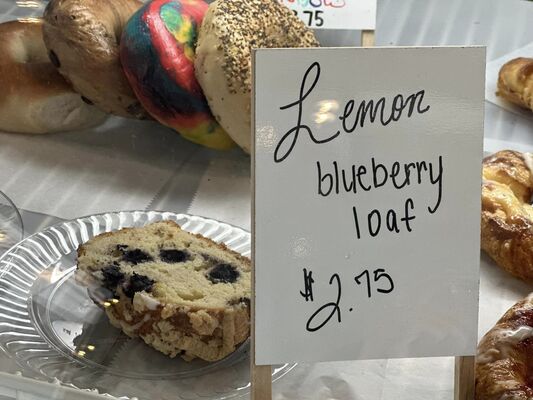 .75
Lemon
blueberry
loaf
$2.75